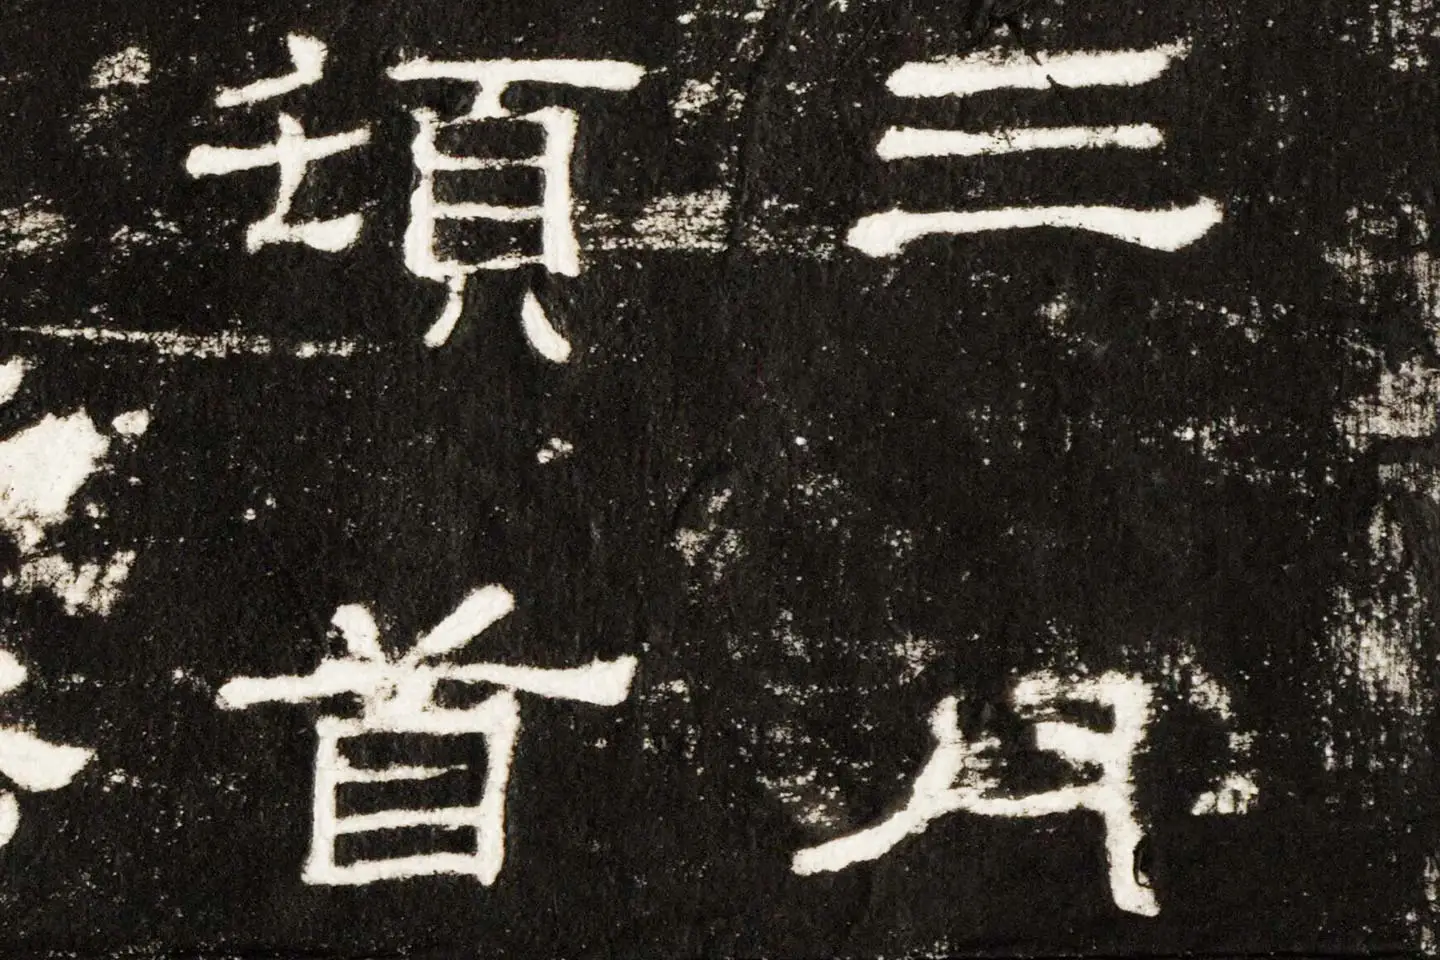 三月
頓首